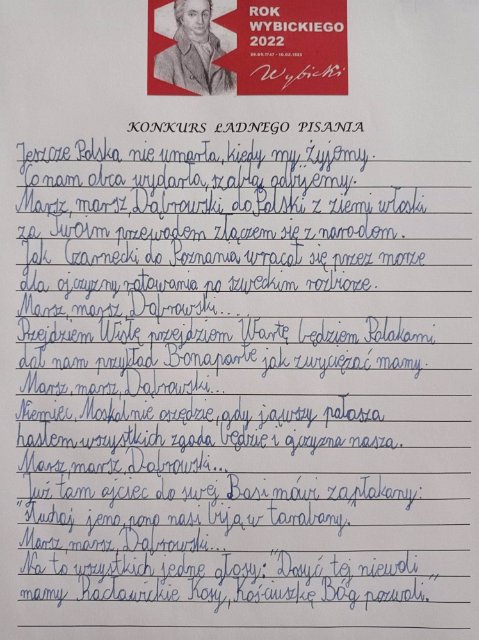 ROK
WYBICKIEGO
2022
Wybicki
KONKURS ŁADNEGO PISANIA
Jeszcze Polska nie umarła, kiedy my żyjemy.
Co nam obca wydarła, szablą odbijemy.
Marsz, marsz, Dąbrowski do Polski z ziemi włoski
za Twoim przewodem złączem się z narodem.
Jak Czarnecki do Poznania wracał się przez morze
dla ojczyzny ratowania po szweckim rozbiorze.
Marsz, marsz, Dąbrowski...
Przejdziem Wisłę przejdziem Wartę będziem Polakami
dał nam przykład Bonaparte jak zwyciężać mamy.
Marsz, marsz, Dąbrowski...
Niemiec, Moskal nie osiędzie, gdy jąwszy pałasza
hasłem wszystkich zgoda będzie i ojczyzna nasza.
Marsz, marsz, Dąbrowski...
Już tam ojciec do swej Basi mówi zapłakany:
"Słuchaj jeno, pono nasi biją w tarabany."
Marsz, marsz, Dąbrowski...
Na to wszystkich jedne głosy: "Dosyć tej niewoli
mamy Racławickie Kosy, Kościuszkę Bóg pozwoli."